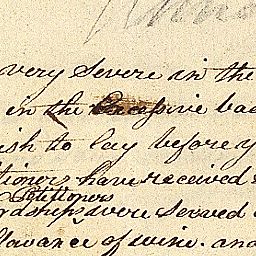 very severe in the
in the Excessive bad
ish to lay before y
titioners have received
Petitioners
ordships were served
llowance of wine. and